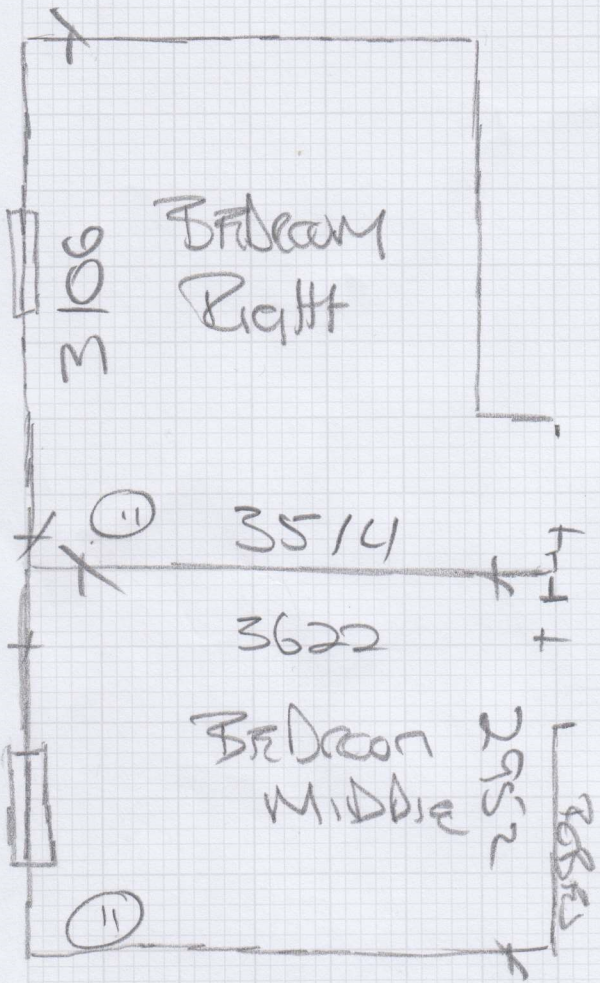 BEDROOM
RigHt
3106
11
3514
3622
BEDROOM
MIDDLE
2952
11